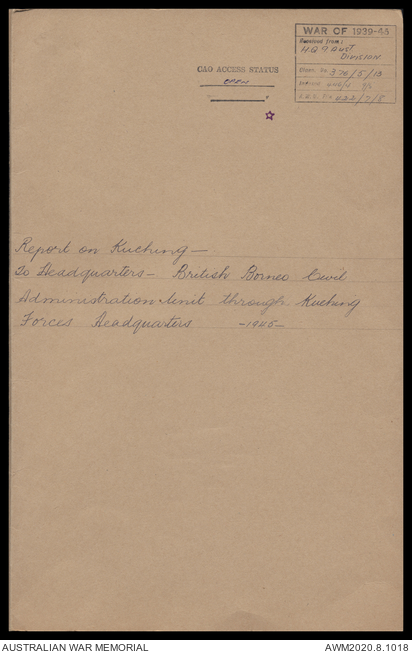 WAR OF 1939-45
Received from:
HQ 7 AUST
DIVISION
376/5/13
CAO ACCESS STATUS
OPEN
Report on Kuching—
to Headquarters— British Borneo Civil
Administration Unit through Kuching
Forces Headquarters —1945—
AUSTRALIAN WAR MEMORIAL
AWM2020.8.1018